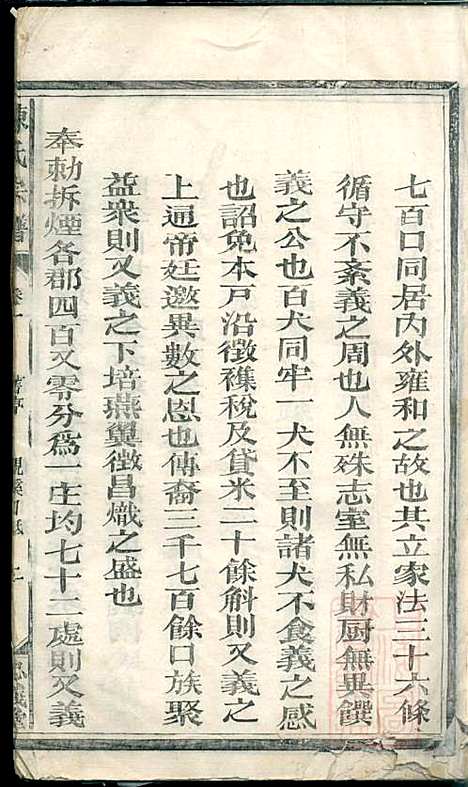 七百口同居內外雍和之故也其立家法三十六條
循守不紊義之周也人無殊志室無私財厨無異饌
義之公也百犬同牢一犬不至則諸犬不食義之感
也詔免本戸沿徵襍稅及貸米二十餘斛則又義之
上通帝廷邀異數之恩也傳裔三千七百餘口族聚
益衆則又義之下培燕翼徵昌熾之盛也
奉勅拆煙各郡四百又零分爲一庄均七十二處則又義
陳氏宗譜
卷一